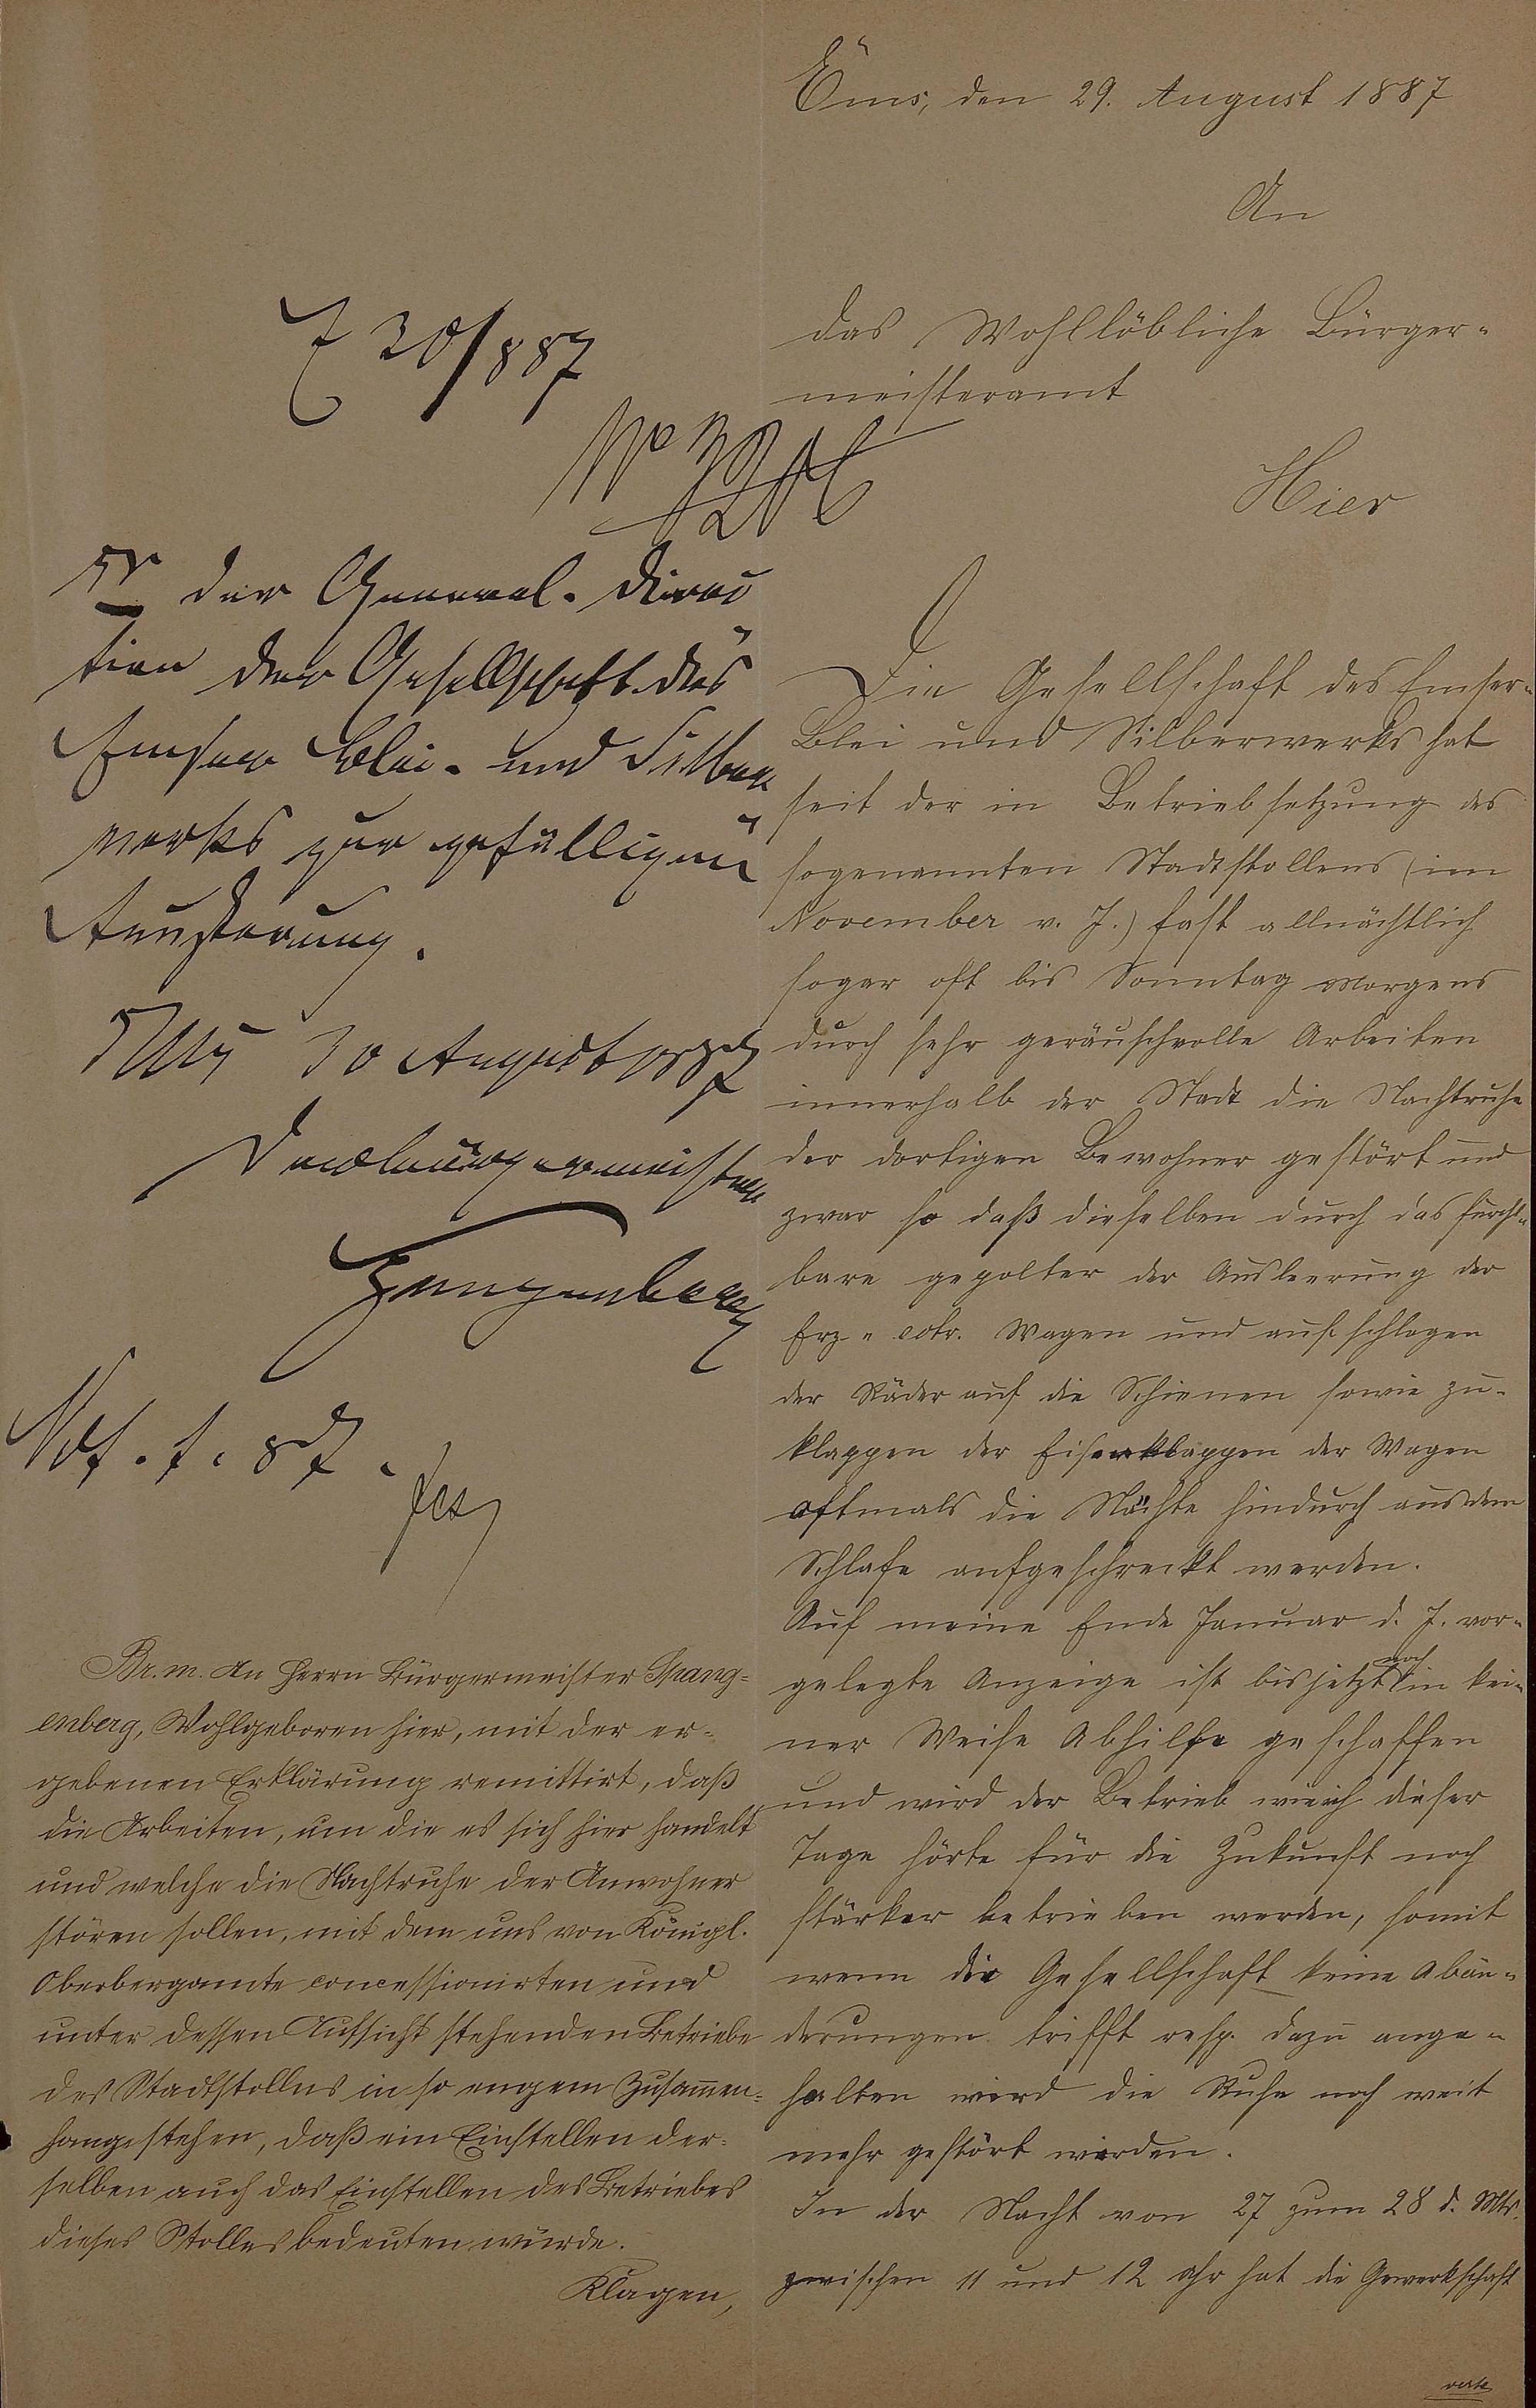 Ems, den 29. August 1887
An
das Wohllöbliche Bürger-
meisteramt
Hier
Die Gesellschaft des Emser-
Blei und Silberwerks hat
seit der in Betriebsetzung des
sogenannten Stadtstollens (im
November v. J.) fast allnächtlich
sogar oft bis Sonntag Morgens
durch sehr geräuschvolle Arbeiten
innerhalb der Stadt die Nachtruhe
der dortigen Bewohner gestört und
zwar so daß dieselben durch das furcht-
bare gepolter der Ausleerung der
Erz- Wagen und aufschlagen
der Räder auf die Schienen sowie zu-
klappen der Eisenklappen der Wagen
oftmals die Nächte hindurch aus dem
Schlafe aufgeschreckt werden.
Auf meine Ende Januar d. J. vor-
gelegte Anzeige ist bis jetzt noch in kei-
ner Weise Abhilfe geschaffen
und wird der Betrieb wie ich dieser
Tage hörte für die Zukunft noch
stärker betrieben werden, somit
wenn die Gesellschaft keine Abän-
derungen trifft resp. dazu ange-
halten wird die Ruhe noch weit
mehr gestört werden.
In der Nacht von 27 zum 28 d. Mts.
zwischen 11 und 12 Uhr hat die Gewerkschaft
verte
E 30/8 87
der General-Direc
tion der Gesellschaft des
Emser Blei- und Silber
werks zur gefälligen
Aeußerung.
Ems 30 August 1887
Der Bürgermeister
Spangenberg
Br. m. An Herrn Bürgermeister Spang-
enberg, Wohlgeboren hier, mit der er-
gebenen Erklärung remittirt, daß
die Arbeiten, um die es sich hier handelt
und welche die Nachtruhe der Anwohner
stören sollen, mit dem uns von Königl.
Oberbergamte concessionirten und
unter dessen Aufsicht stehenden Betriebe
des Stadtstollns in so engem Zusammen-
hange stehen, daß ein Einstellen der-
selben auch das Einstellen des Betriebes
dieses Stolles bedeuten würde.
Klagen,